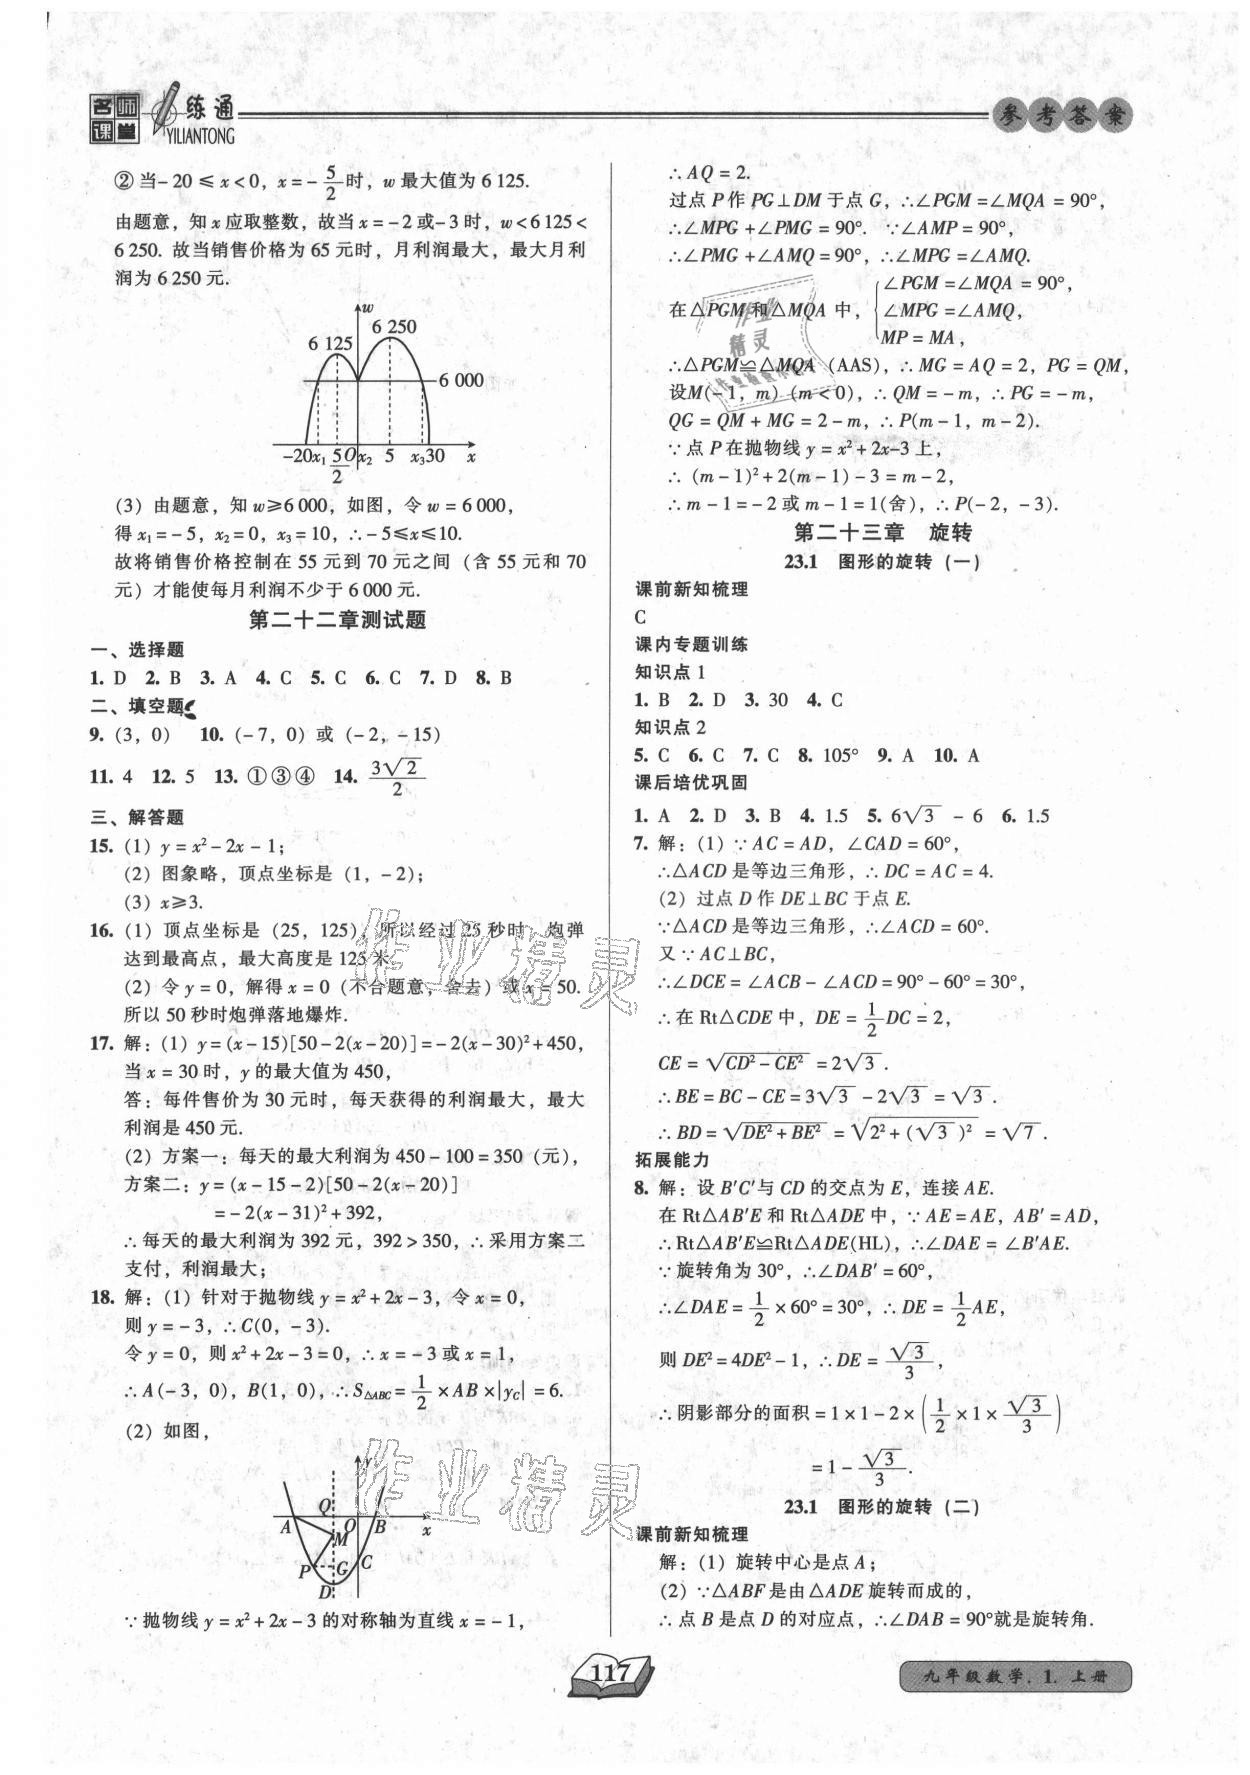 名师课堂 一练通
YILIANTONG
参考答案
② 当-20≤x<0，x=-5/2时，w最大值为6 125.
由题意，知x应取整数，故当x=-2或-3时，w<6 125<
6 250. 故当销售价格为65元时，月利润最大，最大月利
润为6 250元.
w
6 250
6 125
6 000
-20 x₁ 5/2 O x₂ 5 x₃ 30 x
(3) 由题意，知w≥6 000，如图，令w=6 000，
得x₁=-5，x₂=0，x₃=10，∴-5≤x≤10.
故将销售价格控制在55元到70元之间（含55元和70
元）才能使每月利润不少于6 000元.
第二十二章测试题
一、选择题
1. D 2. B 3. A 4. C 5. C 6. C 7. D 8. B
二、填空题
9. (3，0) 10. (-7，0) 或 (-2，-15)
11. 4 12. 5 13. ①③④ 14. 3√2/2
三、解答题
15. (1) y=x²-2x-1；
(2) 图象略，顶点坐标是 (1，-2)；
(3) x≥3.
16. (1) 顶点坐标是 (25，125)，所以经过25秒时，炮弹
达到最高点，最大高度是125米.
(2) 令y=0，解得x=0 (不合题意，舍去) 或x=50.
所以50秒时炮弹落地爆炸.
17. 解：(1) y=(x-15)[50-2(x-20)]=-2(x-30)²+450，
当x=30时，y的最大值为450，
答：每件售价为30元时，每天获得的利润最大，最大
利润是450元.
(2) 方案一：每天的最大利润为450-100=350 (元)，
方案二：y=(x-15-2)[50-2(x-20)]
=-2(x-31)²+392，
∴每天的最大利润为392元，392>350，∴采用方案二
支付，利润最大；
18. 解：(1) 针对于抛物线y=x²+2x-3，令x=0，
则y=-3，∴C(0，-3).
令y=0，则x²+2x-3=0，∴x=-3或x=1，
∴A(-3，0)，B(1，0)，∴S△ABC=1/2×AB×|yC|=6.
(2) 如图，
y
Q
A O B x
M
P G C
D
∵抛物线y=x²+2x-3的对称轴为直线x=-1，
∴AQ=2.
过点P作PG⊥DM于点G，∴∠PGM=∠MQA=90°，
∴∠MPG+∠PMG=90°. ∵∠AMP=90°，
∴∠PMG+∠AMQ=90°，∴∠MPG=∠AMQ.
在△PGM和△MQA中，{∠PGM=∠MQA=90°，
∠MPG=∠AMQ，
MP=MA，
∴△PGM≌△MQA (AAS)，∴MG=AQ=2，PG=QM，
设M(-1，m) (m<0)，∴QM=-m，∴PG=-m，
QG=QM+MG=2-m，∴P(m-1，m-2).
∵点P在抛物线y=x²+2x-3上，
∴(m-1)²+2(m-1)-3=m-2，
∴m-1=-2或m-1=1(舍)，∴P(-2，-3).
第二十三章 旋转
23.1 图形的旋转 (一)
课前新知梳理
C
课内专题训练
知识点1
1. B 2. D 3. 30 4. C
知识点2
5. C 6. C 7. C 8. 105° 9. A 10. A
课后培优巩固
1. A 2. D 3. B 4. 1.5 5. 6√3-6 6. 1.5
7. 解：(1) ∵AC=AD，∠CAD=60°，
∴△ACD是等边三角形，∴DC=AC=4.
(2) 过点D作DE⊥BC于点E.
∵△ACD是等边三角形，∴∠ACD=60°.
又∵AC⊥BC，
∴∠DCE=∠ACB-∠ACD=90°-60°=30°，
∴在Rt△CDE中，DE=1/2DC=2，
CE=√(CD²-CE²)=2√3.
∴BE=BC-CE=3√3-2√3=√3.
∴BD=√(DE²+BE²)=√(2²+(√3)²)=√7.
拓展能力
8. 解：设B′C′与CD的交点为E，连接AE.
在Rt△AB′E和Rt△ADE中，∵AE=AE，AB′=AD，
∴Rt△AB′E≌Rt△ADE(HL)，∴∠DAE=∠B′AE.
∵旋转角为30°，∴∠DAB′=60°，
∴∠DAE=1/2×60°=30°，∴DE=1/2AE，
则DE²=4DE²-1，∴DE=√3/3，
∴阴影部分的面积=1×1-2×(1/2×1×√3/3)
=1-√3/3.
23.1 图形的旋转 (二)
课前新知梳理
解：(1) 旋转中心是点A；
(2) ∵△ABF是由△ADE旋转而成的，
∴点B是点D的对应点，∴∠DAB=90°就是旋转角.
117
九年级数学．1．上册
作业精灵
作业精灵
作业
精灵